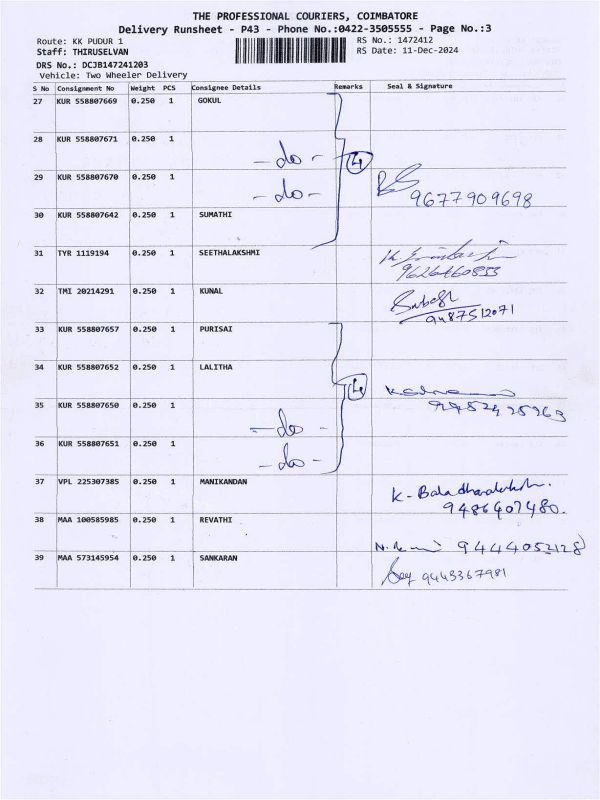 THE PROFESSIONAL COURIERS, COIMBATORE
Delivery Runsheet - P43 - Phone No.:0422-3505555 - Page No.:3
Route: KK PUDUR 1 RS No.: 1472412
Staff: THIRUSELVAN RS Date: 11-Dec-2024
DRS No.: DCJB147241203
Vehicle: Two Wheeler Delivery
S No Consignment No Weight PCS Consignee Details Remarks Seal & Signature
27 KUR 558807669 0.250 1 GOKUL
28 KUR 558807671 0.250 1 - do -
29 KUR 558807670 0.250 1 - do - 4 9677909698
30 KUR 558807642 0.250 1 SUMATHI
31 TYR 1119194 0.250 1 SEETHALAKSHMI
32 TMI 20214291 0.250 1 KUNAL 9487512071
33 KUR 558807657 0.250 1 PURISAI
34 KUR 558807652 0.250 1 LALITHA 4
35 KUR 558807650 0.250 1 - do -
36 KUR 558807651 0.250 1 - do -
37 VPL 225307385 0.250 1 MANIKANDAN 9486407480.
38 MAA 100585985 0.250 1 REVATHI 9444052128
39 MAA 573145954 0.250 1 SANKARAN 9443367981